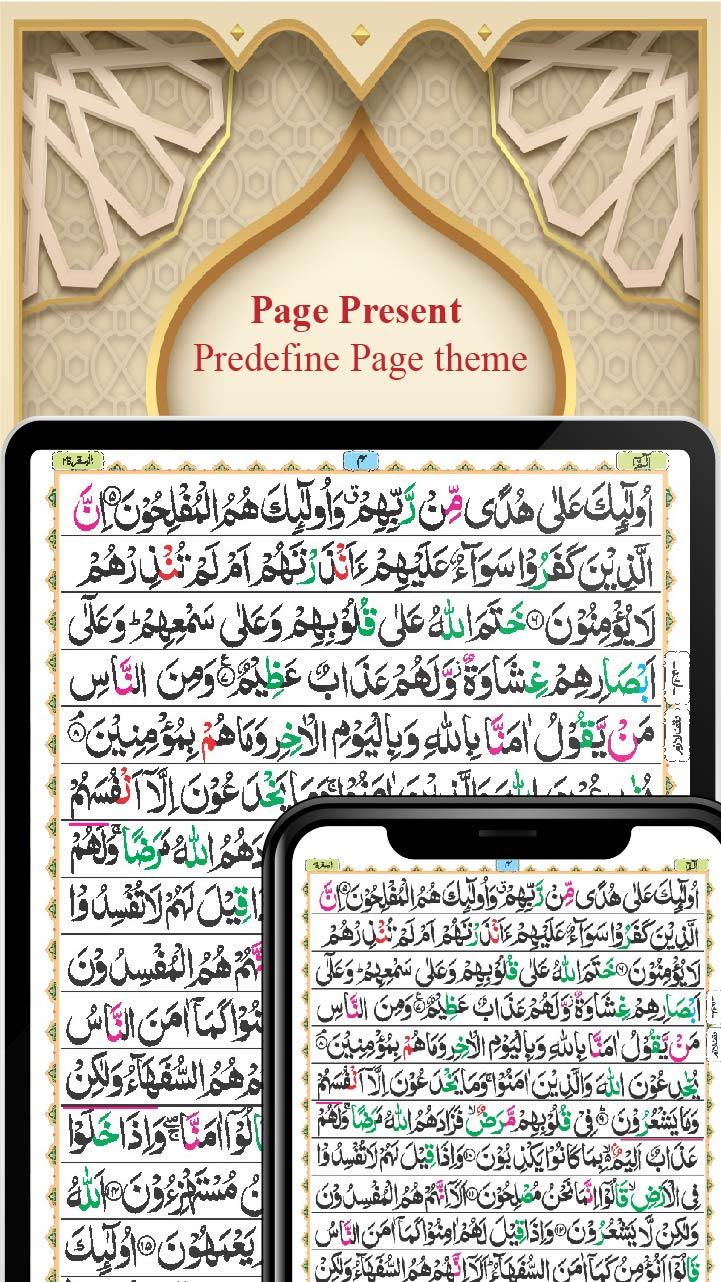 Page Present
Predefine Page theme
البقرة٢
٤
الٓمٓ
اُولٰٓئِكَ عَلٰى هُدًى مِّنْ رَّبِّهِمْ ۙ وَاُولٰٓئِكَ هُمُ الْمُفْلِحُوْنَ ۵ اِنَّ
الَّذِيْنَ كَفَرُوْا سَوَآءٌ عَلَيْهِمْ ءَاَنْذَرْتَهُمْ اَمْ لَمْ تُنْذِرْهُمْ
لَا يُؤْمِنُوْنَ ۶ خَتَمَ اللّٰهُ عَلٰى قُلُوْبِهِمْ وَعَلٰى سَمْعِهِمْ ؕ وَعَلٰٓى
اَبْصَارِهِمْ غِشَاوَةٌ ۫ وَّلَهُمْ عَذَابٌ عَظِيْمٌ ۷ وَمِنَ النَّاسِ
مَنْ يَّقُوْلُ اٰمَنَّا بِاللّٰهِ وَبِالْيَوْمِ الْاٰخِرِ وَمَا هُمْ بِمُؤْمِنِيْنَ ۸
يَخْدَعُوْنَ اِلَّاۤ اَنْفُسَهُمْ
اللّٰهُ مَرَضًا ۚ وَلَهُمْ
قِيْلَ لَهُمْ لَا تُفْسِدُوْا
هُمُ الْمُفْسِدُوْنَ
كَمَاۤ اٰمَنَ النَّاسُ
هُمُ السُّفَهَآءُ وَلٰكِنْ
قَالُوْۤا اٰمَنَّا ۖۚ وَاِذَا خَلَوْا
مُسْتَهْزِءُوْنَ ۱۴ اَللّٰهُ
يَعْمَهُوْنَ ۱۵ اُولٰٓئِكَ
اُولٰٓئِكَ عَلٰى هُدًى مِّنْ رَّبِّهِمْ ۙ وَاُولٰٓئِكَ هُمُ الْمُفْلِحُوْنَ ۵ اِنَّ
الَّذِيْنَ كَفَرُوْا سَوَآءٌ عَلَيْهِمْ ءَاَنْذَرْتَهُمْ اَمْ لَمْ تُنْذِرْهُمْ
لَا يُؤْمِنُوْنَ ۶ خَتَمَ اللّٰهُ عَلٰى قُلُوْبِهِمْ وَعَلٰى سَمْعِهِمْ ؕ وَعَلٰٓى
اَبْصَارِهِمْ غِشَاوَةٌ ۫ وَّلَهُمْ عَذَابٌ عَظِيْمٌ ۷ وَمِنَ النَّاسِ
مَنْ يَّقُوْلُ اٰمَنَّا بِاللّٰهِ وَبِالْيَوْمِ الْاٰخِرِ وَمَا هُمْ بِمُؤْمِنِيْنَ ۸
يُخٰدِعُوْنَ اللّٰهَ وَالَّذِيْنَ اٰمَنُوْا ۚ وَمَا يَخْدَعُوْنَ اِلَّاۤ اَنْفُسَهُمْ
وَمَا يَشْعُرُوْنَ ۹ فِيْ قُلُوْبِهِمْ مَّرَضٌ ۙ فَزَادَهُمُ اللّٰهُ مَرَضًا ۚ وَلَهُمْ
عَذَابٌ اَلِيْمٌ ۢ ۙ بِمَا كَانُوْا يَكْذِبُوْنَ ۱۰ وَاِذَا قِيْلَ لَهُمْ لَا تُفْسِدُوْا
فِى الْاَرْضِ ۙ قَالُوْۤا اِنَّمَا نَحْنُ مُصْلِحُوْنَ ۱۱ اَلَاۤ اِنَّهُمْ هُمُ الْمُفْسِدُوْنَ
وَلٰكِنْ لَّا يَشْعُرُوْنَ ۱۲ وَاِذَا قِيْلَ لَهُمْ اٰمِنُوْا كَمَاۤ اٰمَنَ النَّاسُ
قَالُوْۤا اَنُؤْمِنُ كَمَاۤ اٰمَنَ السُّفَهَآءُ ؕ اَلَاۤ اِنَّهُمْ هُمُ السُّفَهَآءُ وَلٰكِنْ